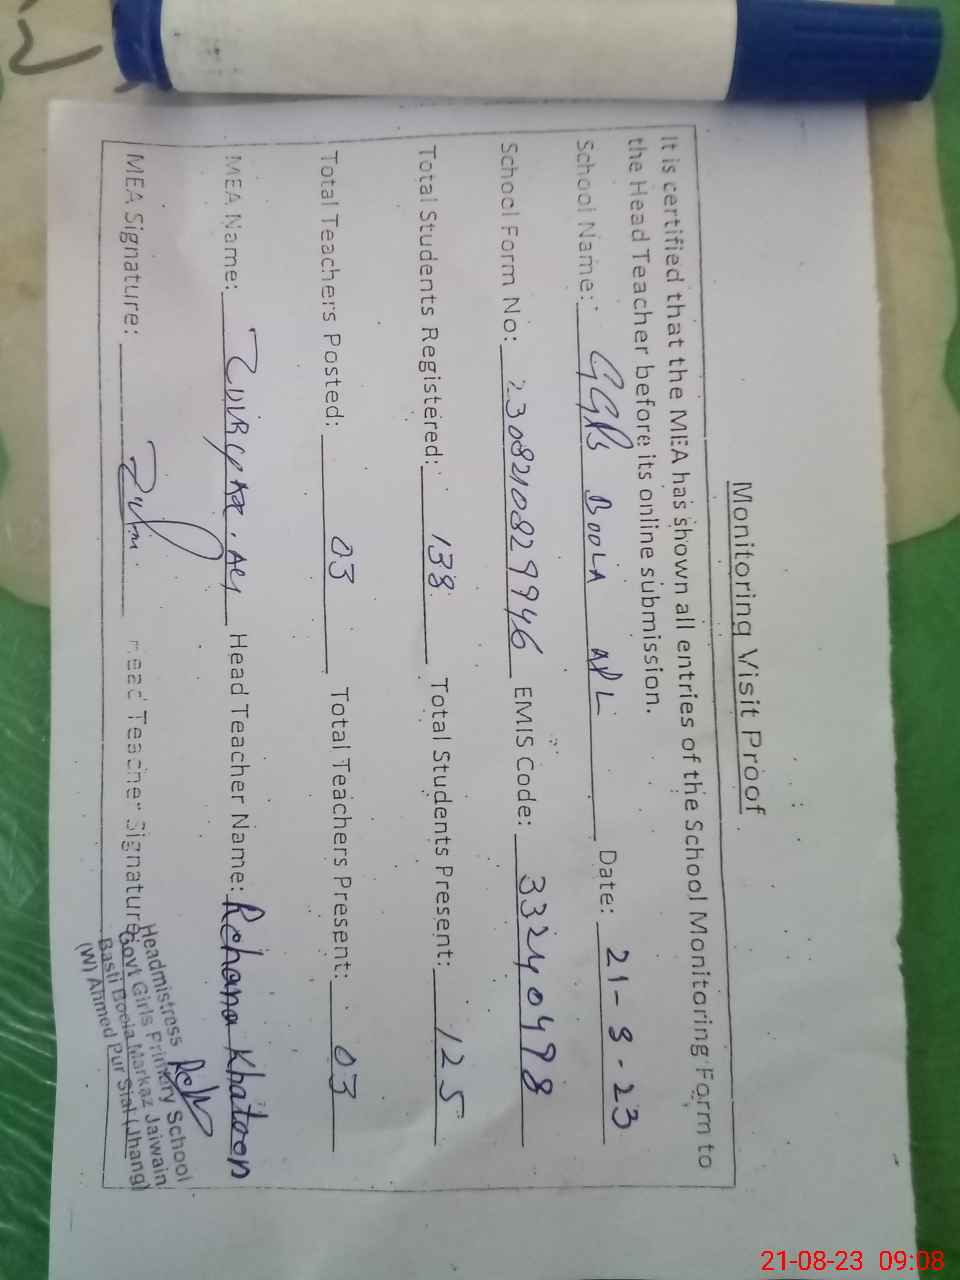 Monitoring Visit Proof
It is certified that the MEA has shown all entries of the School Monitoring Form to
the Head Teacher before its online submission.
School Name: GGPS BOOLA APL Date: 21-8-23
School Form No: 2308210829946 EMIS Code: 33240498
Total Students Registered: 138 Total Students Present: 125
Total Teachers Posted: 03 Total Teachers Present: 03
MEA Name: Head Teacher Name: Rehana Khatoon
MEA Signature: Head Teacher Signature:
Headmistress
Govt Girls Primary School
Basti Boola Markaz Jaiwain
(W) Ahmed Pur Sial (Jhang)
21-08-23 09:08